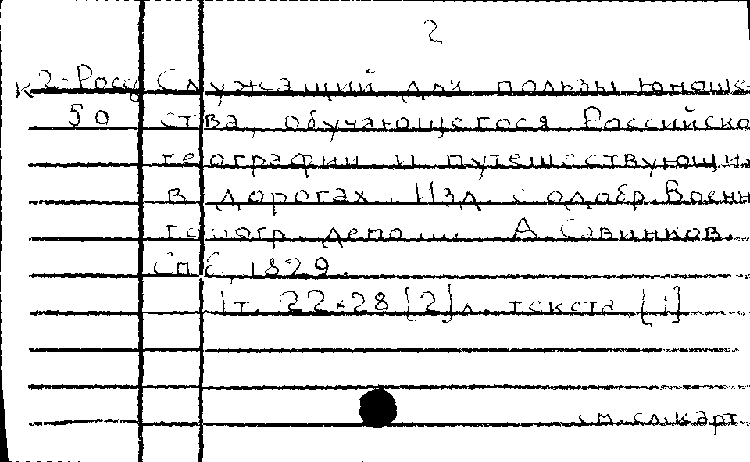 2
К2-Росс Служащий для пользы юноше-
50 ства, обучающегося Российско
географии и путешествующих
в дорогах. Изд. с одобр. Воен.
топогр. депо... А. Савинков.
СПб, 1829.
1т. 22×28 [2] л. текста [1]
см. сл. карт.